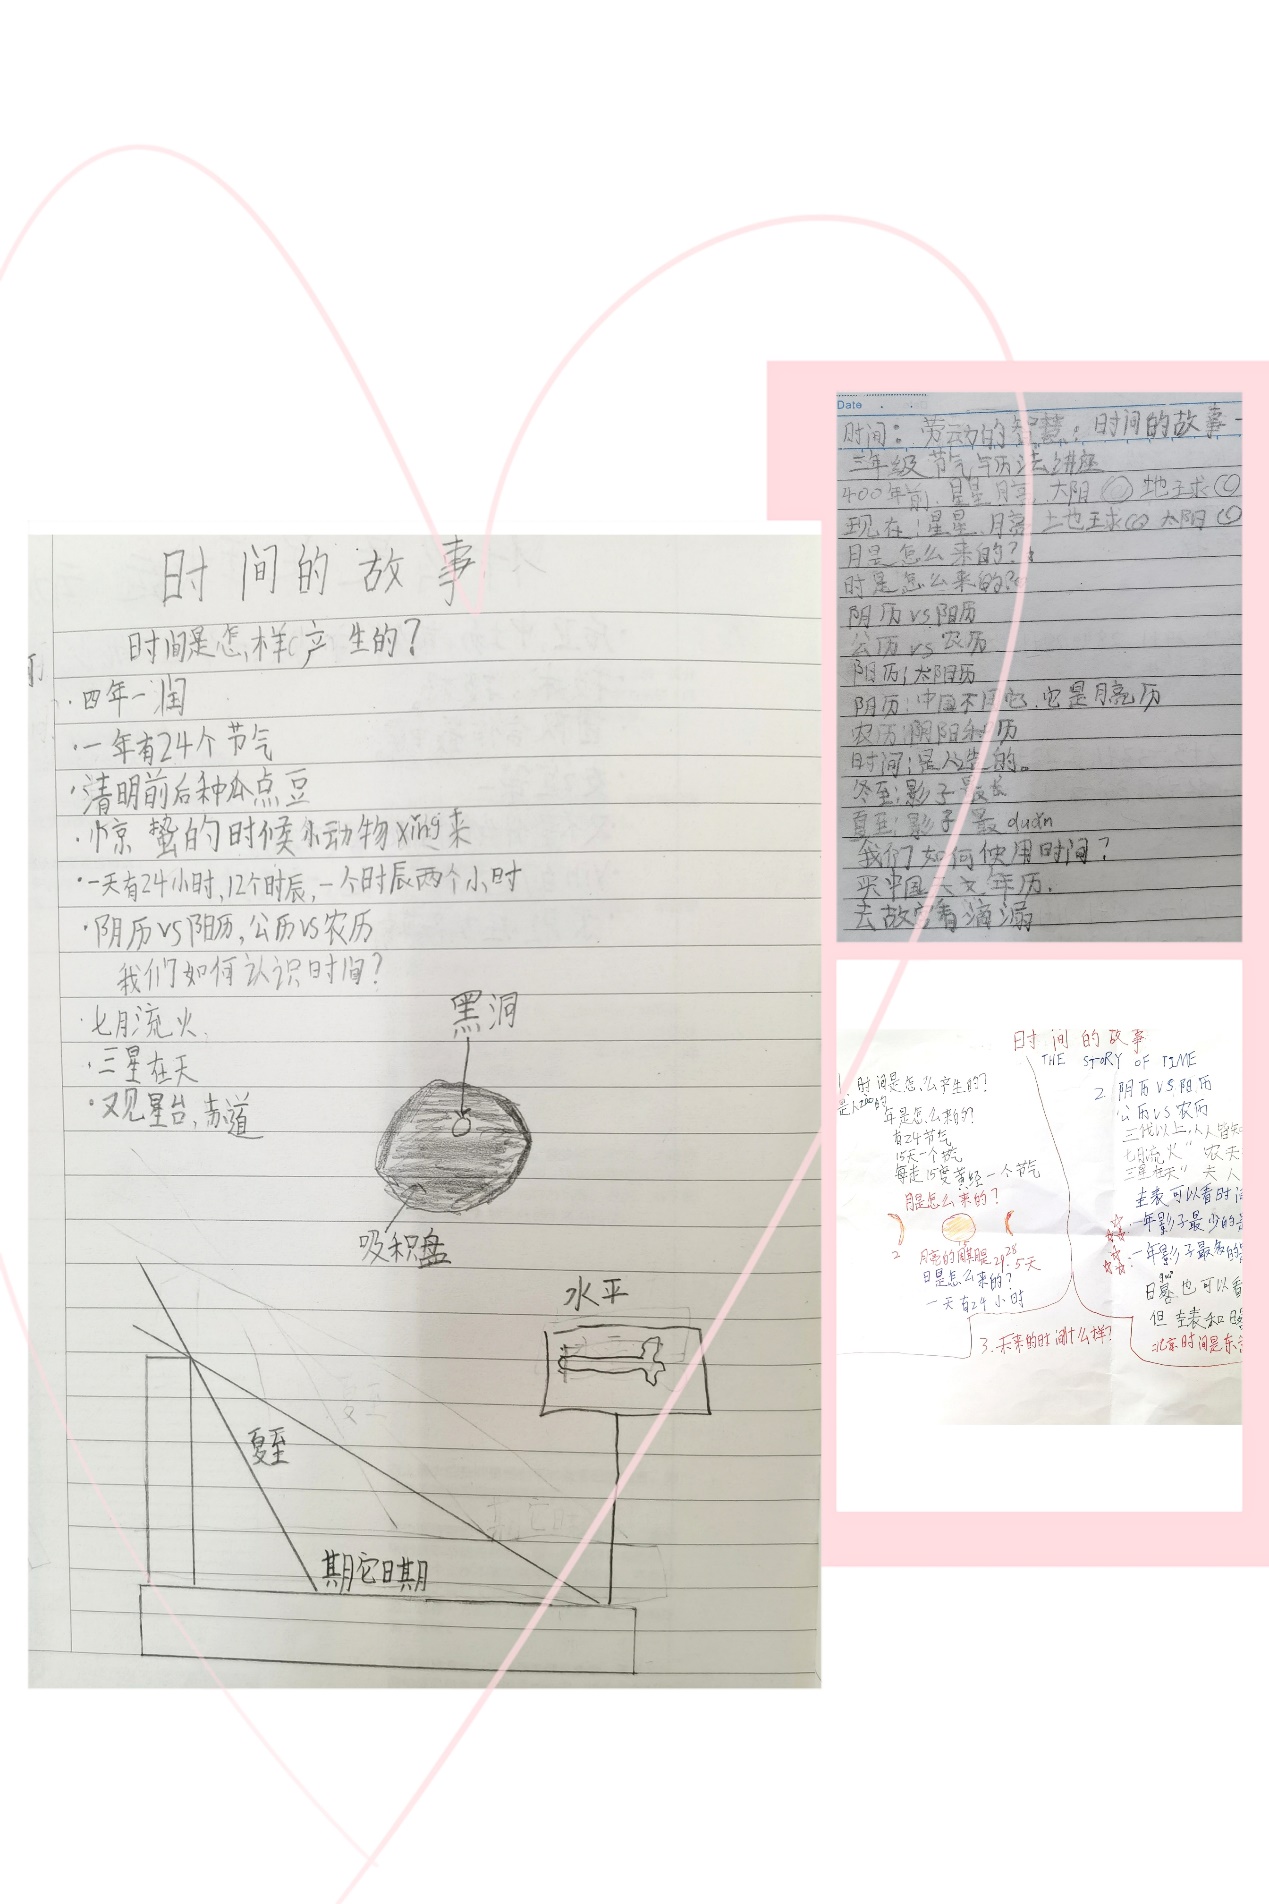 时间的故事
时间是怎样产生的?
·四年一润
·一年有24个节气
·清明前后种瓜点豆
·惊蛰的时候小动物xǐng来
·一天有24小时,12个时辰,一个时辰两个小时
·阴历vs阳历,公历vs农历
我们如何认识时间?
·七月流火.
·三星在天
·观星台,赤道
黑洞
吸积盘
水平
夏至
期它日期
Date
时间:劳动的智慧:时间的故事-
三年级节气与历法讲座
400年前,星星月亮,太阳 地球
现在:星星,月亮 地球 太阳
月是怎么来的?
时是怎么来的?
阴历vs阳历
公历vs农历
阳历:太阳历
阴历:中国不用它.它是月亮历
农历:阴阳和历
时间:是人造的。
冬至:影子最长
夏至:影子最duǎn
我们如何使用时间?
买中国天文年历.
去故宫看滴漏
时间的故事
THE STORY OF TIME
1.时间是怎么产生的?
是人zào的
年是怎么来的?
有24节气
15天一个节气
每走15度黄经一个节气
月是怎么来的?
2
29.5天
日是怎么来的?
一天有24小时
2.阴历VS阳历
公历VS农历
三代以上,人人皆知
七月流火" 农夫
三星在天" 夫人
圭表可以看时间
一年影子最少的
一年影子最多的
guǐ
日晷也可以看
但圭表和日晷
北京时间是东
3.未来的时间什么样?